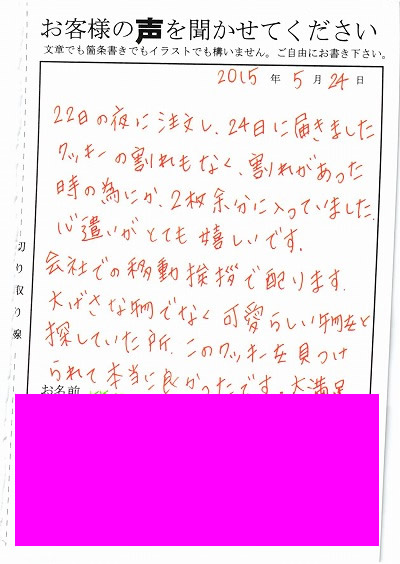 お客様の声を聞かせてください
文章でも箇条書きでもイラストでも構いません。ご自由にお書き下さい。
2015年5月24日
22日の夜に注文し、24日に届きました
クッキーの割れもなく、割れがあった
時の為にか、2枚余分に入っていました。
心遣いがとても嬉しいです。
会社での移動挨拶で配ります。
大げさな物でなく可愛らしい物をと
探していた所、このクッキーを見つけ
られて本当に良かったです。大満足
お名前
切り取り線